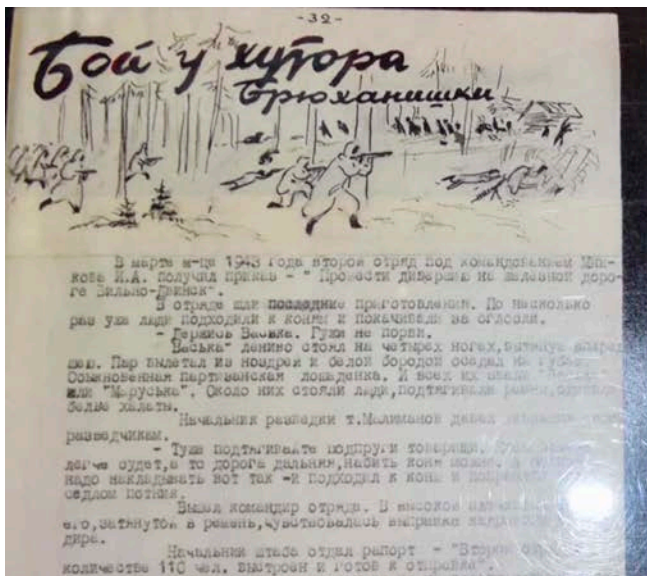 -32-
Бой у хутора
Брюханишки
В марте м-це 1943 года второй отряд под командованием
кова И.А. получил приказ - " Провести диверсию на железной доро-
ге Вильно-Двинск".
В отряде шли последние приготовления. По несколько
раз уже люди подходили к коням и покачивали за оглобли.
- Держись Васька. Гужи не порви.
"Васька" лениво стоял на четырех ногах, вытянув вперед
шею. Пар вылетал из ноздрей и белой бородой оседал на губах.
Обыкновенная партизанская лошаденка. И всех их звали
или "Маруська". Около них стояли люди, подтягивали ремни,
белые халаты.
Начальник разведки т. давал
разведчикам.
- Туже подтягивайте подпруги товарищи.
легче будет, а то дорога дальняя, набить коня можно.
надо накладывать вот так -и подходил к коню и
седлом потник.
Вышел командир отряда. В высокой
его, затянутой в ремень, чувствовалась выправка
дира.
Начальник штаба отдал рапорт - "Второй
количестве 110 чел. выстроен и готов к отправке".